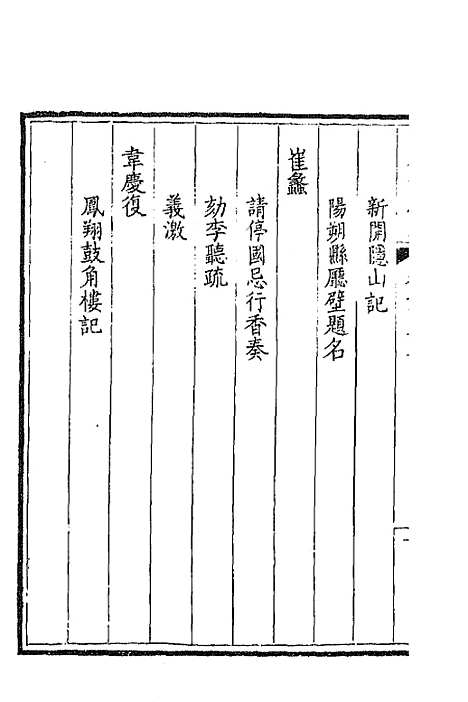 新開隱山記
陽朔縣廳壁題名
崔蠡
請停國忌行香奏
劾李聽疏
義激
韋慶復
鳳翔鼓角樓記